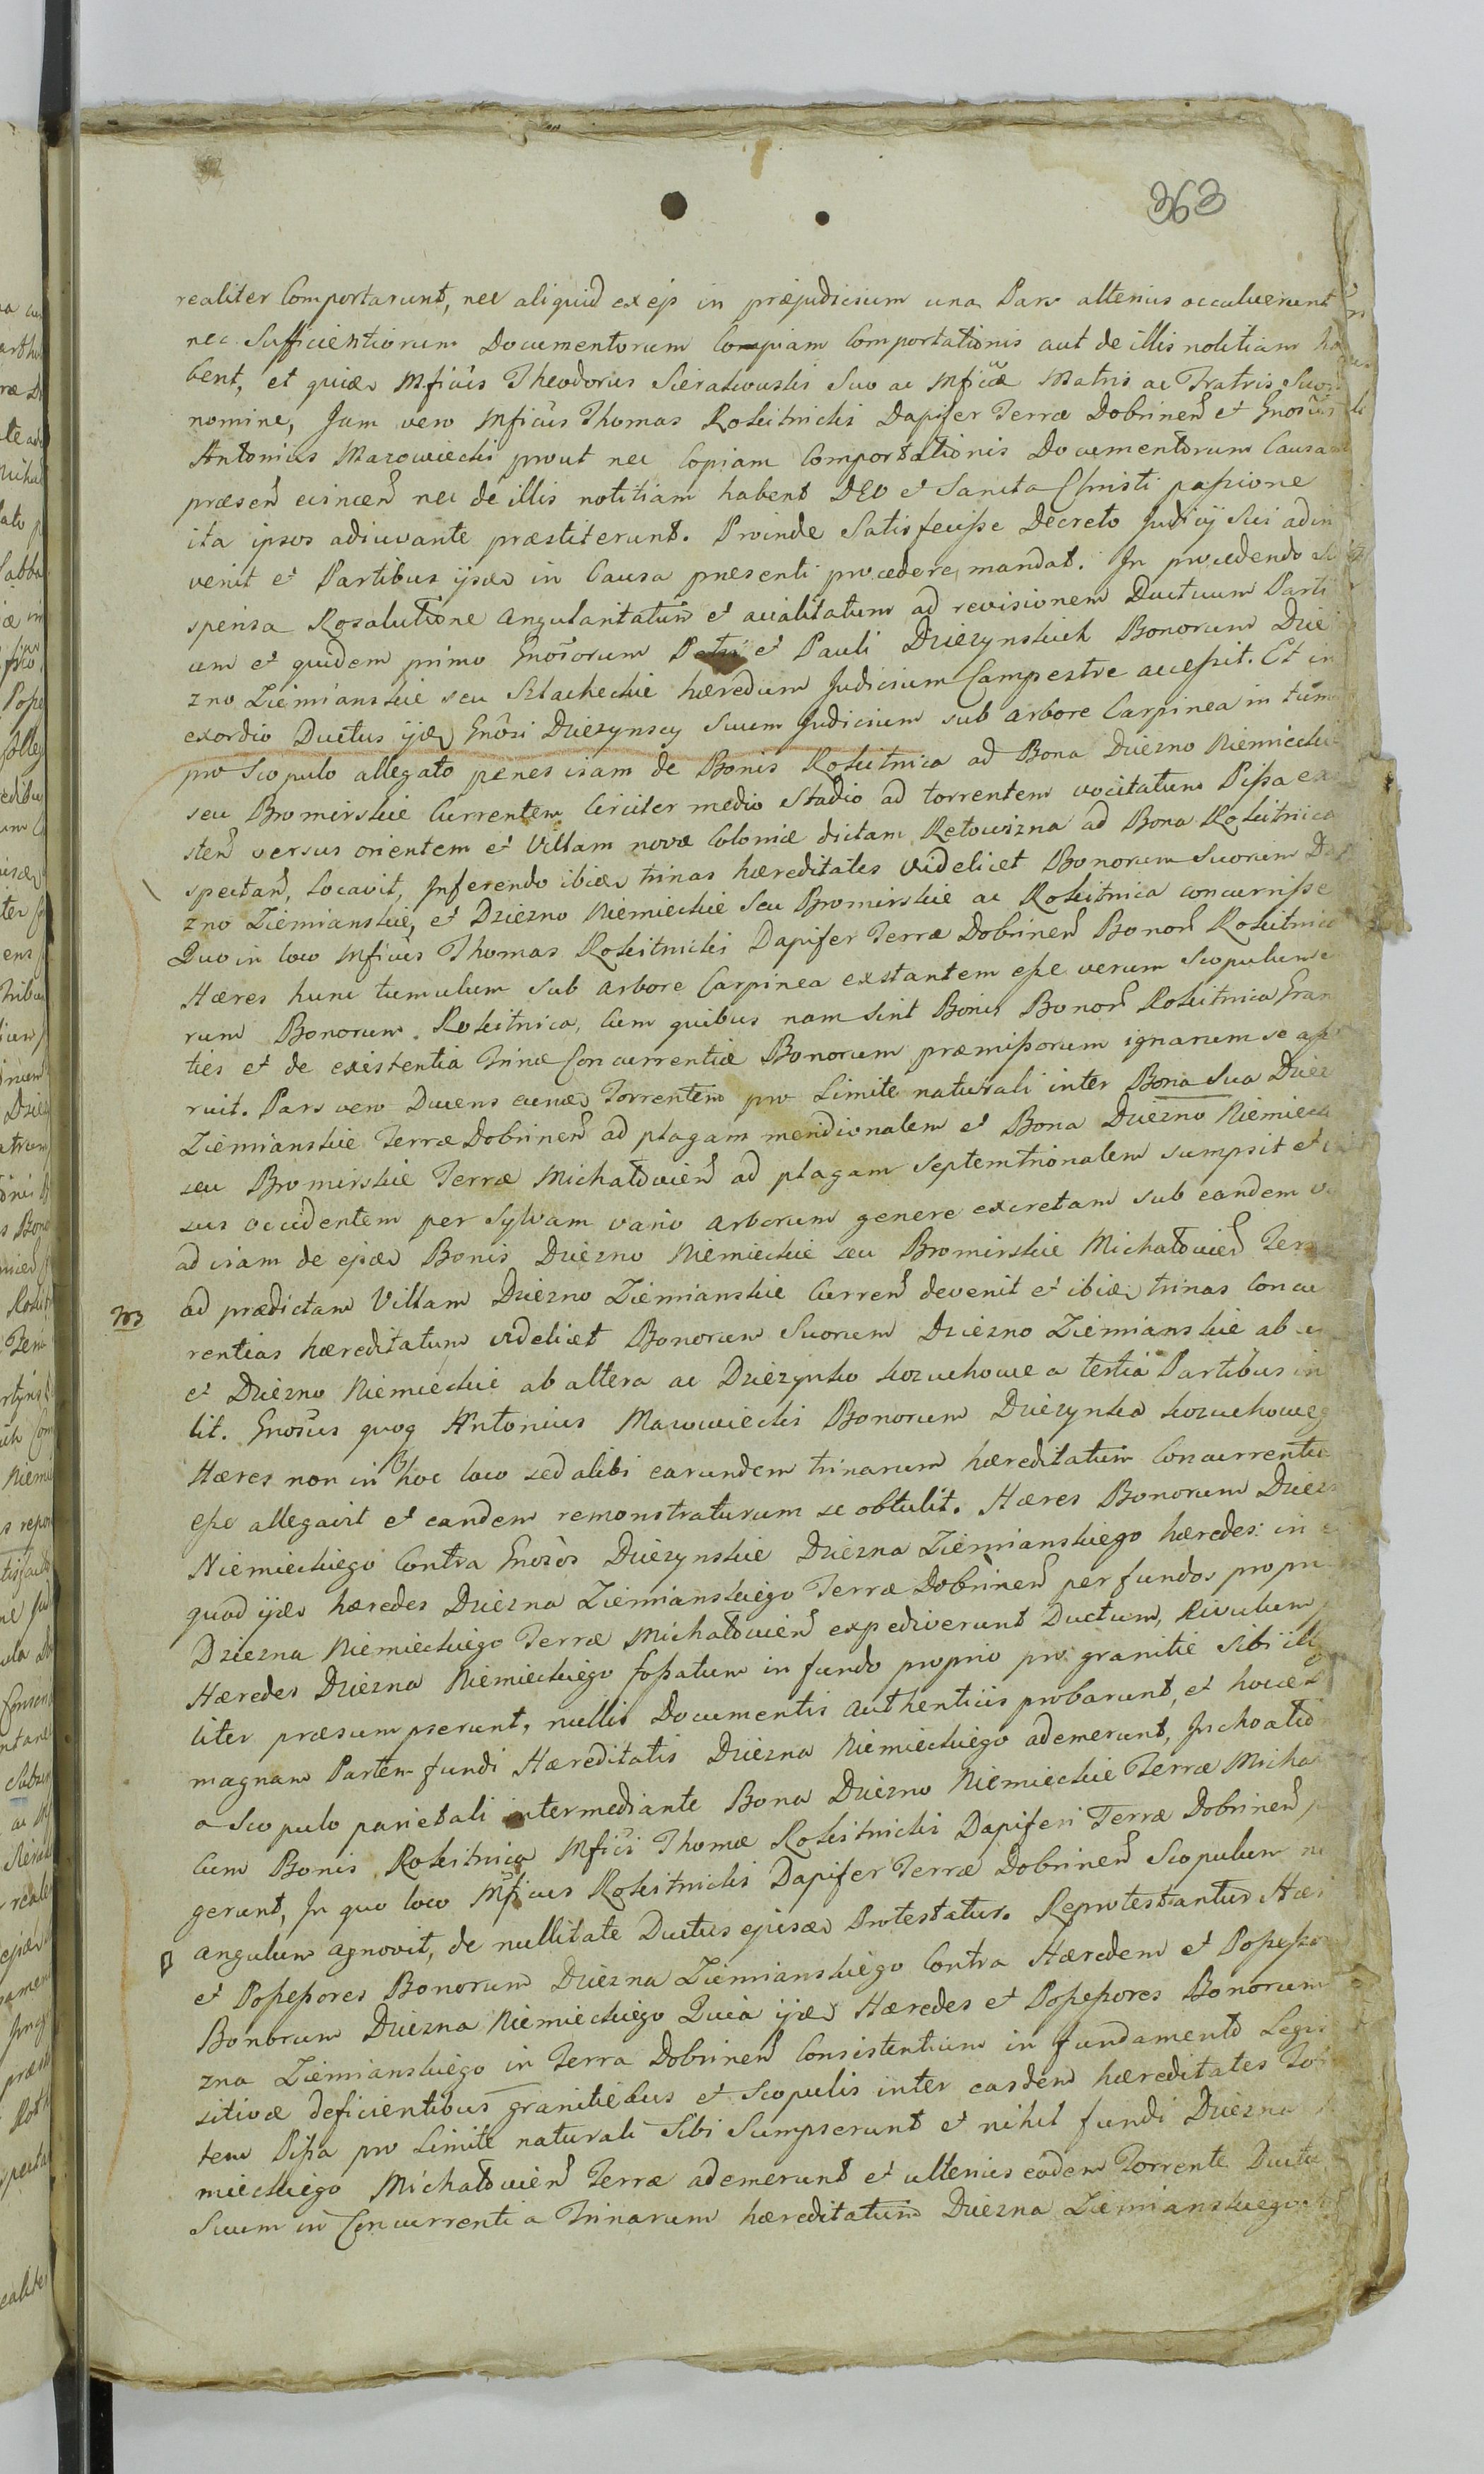 363
realiter Comportarunt, nec aliquid ex ejs in præjudicium una Pars alterius occuluerunt
nec Sufficientiorum Documentorum Copiam Comportationis aut de illis notitiam ha
bent, et quidem Mficus Theodorus Sierakowski Suo ac Mficæ Matris ac Fratris Suor
nomine, Jam vero Mficus Thomas Rokitnicki Dapifer Terræ Dobrinen et Gnosus
Antonius Mazowiecki prout nec Copiam Comportationis Documentorum Causam
præsen concernen nec de illis notitiam habent DEO et Sancta Christi passione
ita ipsos adiuvante præstiterunt. Proinde Satisfecisse Decreto Judicij Sui adin
venit et Partibus ijsdem in Causa præsenti procedere mandat. In procedendo
spensa Resolutione angularitatum et acialitatum ad revisionem Ductuum Parti
um et quidem primo Gnosorum Petri et Pauli Dziezynskich Bonorum Dzie
zno Ziemianskie seu Szlacheckie hæredum Judicium Campestre accessit. Et in
exordio Ductus ijdem Gnosi Dziezynscy Suum Judicium sub arbore Carpinea in tumu
pro Scopulo allegato penes viam de Bonis Rokitnica ad Bona Dziezno Niemieckie
seu Bromirskie Currentem Circiter medio Stadio ad torrentem vocitatum Pissa exi
sten versus orientem et Villam novæ Coloniæ dictam Retowizna ad Bona Rokitnica
spectan, Locavit, Inferendo ibidem trinas hæreditates videlicet Bonorum Suorum Dzie
zno Ziemianskie, et Dziezno Niemieckie Seu Bromirskie ac Rokitnica concurrisse
Quo in loco Mficus Thomas Rokitnicki Dapifer Terræ Dobrinen Bonor Rokitnica
Hæres hunc tumulum Sub arbore Carpinea exstantem esse verum Scopulum
rum Bonorum Rokitnica, Cum quibus nam sint Bonis Bonor Rokitnica Gran
ties et de existentia Trinæ Concurrentiæ Bonorum præmissorum ignarum se asse
ruit. Pars vero Ducens eundem Torrentem pro Limite naturali inter Bona Sua Dziez
Ziemianskie Terræ Dobrinen ad plagam meridionalem et Bona Dziezno Niemiecki
seu Bromirskie Terræ Michałowien ad plagam Septemtrionalem sumpsit et
sus occidentem per Sylvam vario arborum genere excretam sub eandem
ad viam de ejsdem Bonis Dziezno Niemieckie seu Bromirskie Michałowien Terræ
ad prædictam Villam Dziezno Ziemianskie Curren devenit et ibidem trinas Concu
rentias hæreditatum videlicet Bonorum Suorum Dziezno Ziemianskie ab
et Dziezno Niemieckie ab altera ac Dziezynko kozuchowe a tertia Partibus in
lit. Gnosus quoq Antonius Mazowiecki Bonorum Dziezynka kozuchoweg
Hæres non in hoc loco sed alibi earundem trinarum hæreditatum Concurrentia
esse allegavit et eandem remonstraturum se obtulit. Hæres Bonorum Dziez
Niemieckiego Contra Gnosos Dziezynskie Dziezna Ziemianskiego hæredes: in
quod ijdem hæredes Dziezna Ziemianskiego Terræ Dobrinen per fundos propri
Dziezna Niemieckiego Terræ Michałowien expediverunt Ductum, Rivulum
Hæredes Dziezna Niemieckiego fossatum in fundo proprio pro granitie Sibi ille
liter præsumpserunt, nullis Documentis authenticis probarunt, et
magnam Partem fundi Hæreditatis Dziezna Niemieckiego ademerunt, Inchoatio
a Scopulo parietali intermediante Bona Dziezno Niemieckie Terræ Micha
Cum Bonis Rokitnica Mfici Thomæ Rokitnicki Dapiferi Terræ Dobrinen
gerunt, In quo loco Mficus Rokitnicki Dapifer Terræ Dobrinen Scopulum
angulum agnovit, de nullitate Ductus Protestatur. Reprotestantur Hær
et Possessores Bonorum Dziezna Ziemianskiego Contra Hæredem et Possessor
Bonorum Dziezna Niemieckiego Quia ijdem Hæredes et Possessores Bonorum
zna Ziemianskiego in Terra Dobrinen Consistentium in fundamento Legis
sitivæ deficientibus granitiebus et Scopulis inter easdem hæreditates Tor
tem Pissa pro Limite naturali Sibi Sumpserunt et nihil fundi Dziezna
mieckiego Michałowien Terræ ademerunt et ulterius eodem Torrente Ductu
Suum in Concurrentia Trinarum hæreditatum Dziezna Ziemianskiego